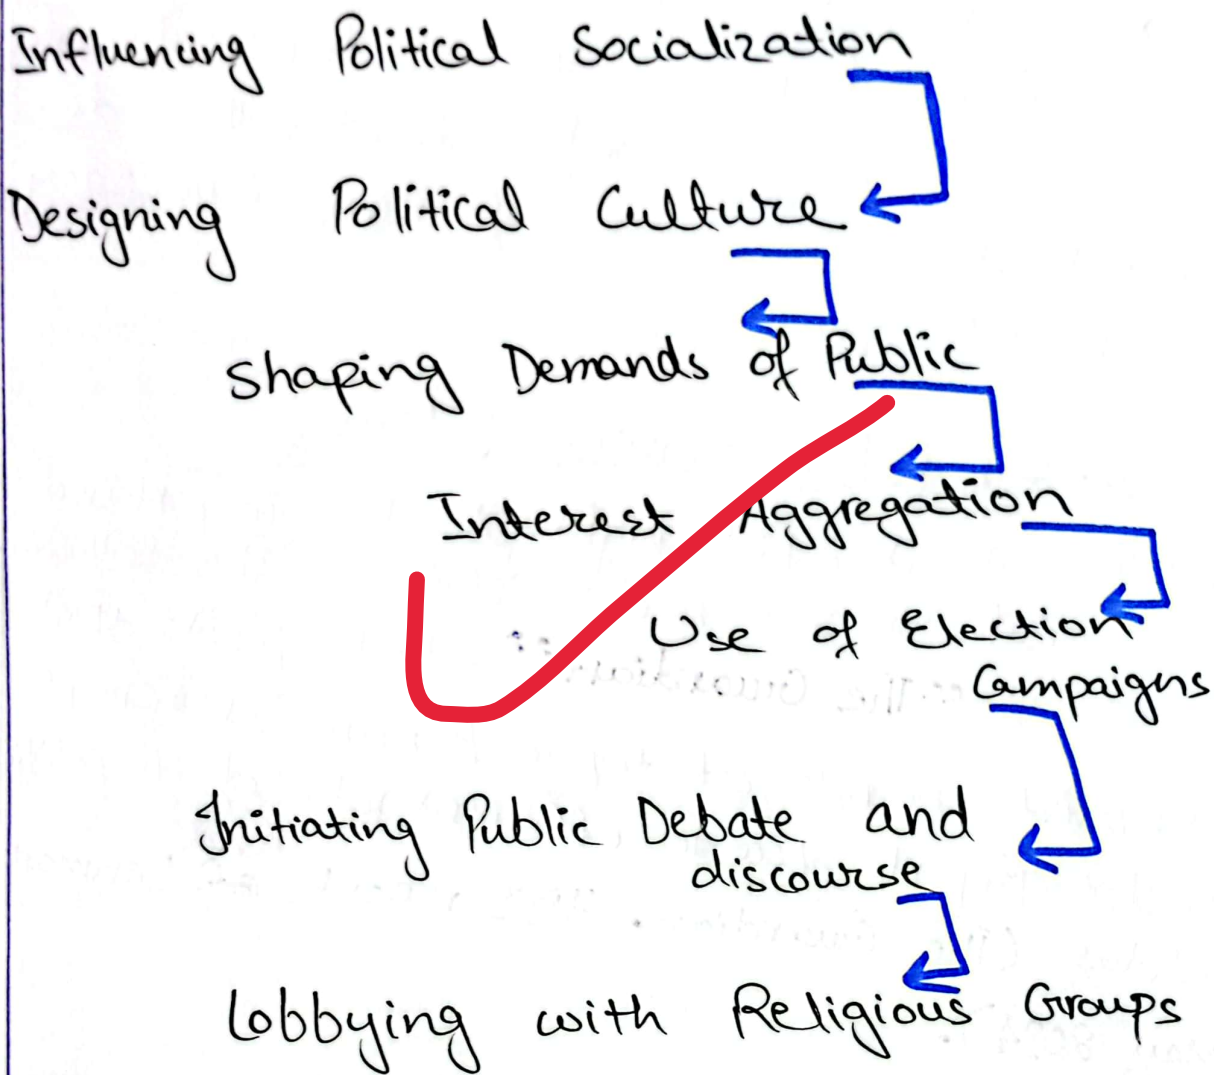 Influencing Political Socialization
Designing Political Culture
Shaping Demands of Public
Interest Aggregation
Use of Election
Campaigns
Initiating Public Debate and
discourse
Lobbying with Religious Groups